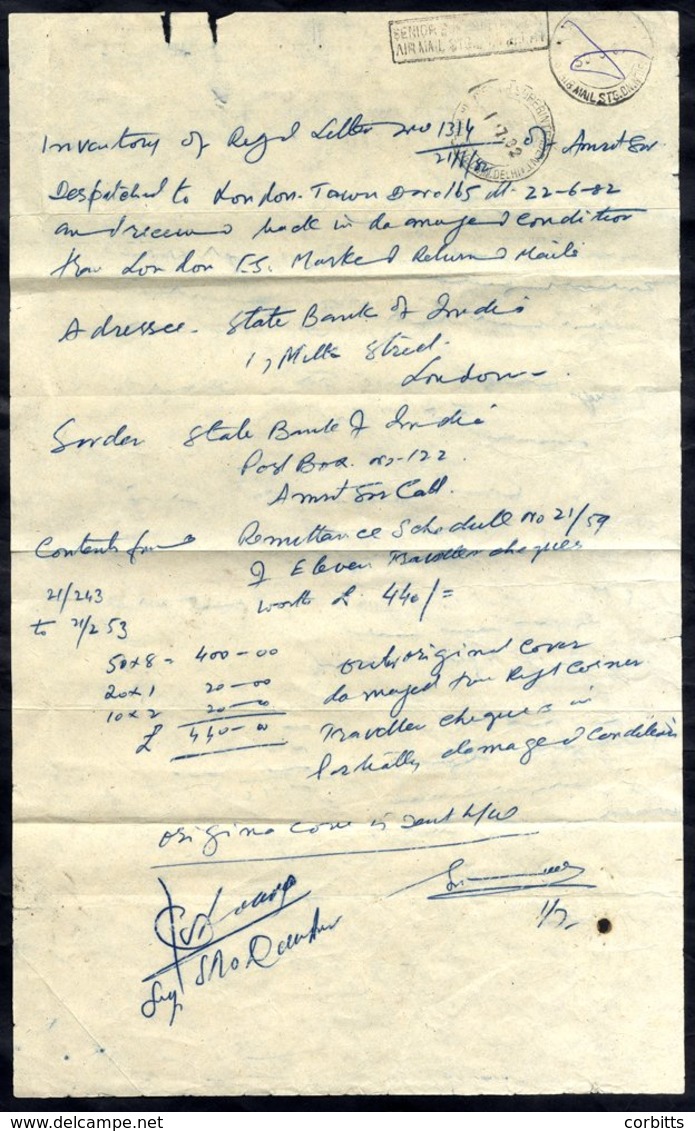 SENIOR
AIR MAIL STG. DELHI
AIR MAIL STG. DN.
1 7 82
Inventory of Regd Letter no 1314 of Amritsar
21/6/82
Despatched to London. Town Davo 165 dt. 22-6-82
and received back in damaged condition
from London F.S. Marked Return Mails
Adressee. State Bank of India
1, Milk Street.
London -
Sender State Bank of India
Post Box. no-122.
Amritsar Call.
Contents found Remittance Schedule no 21/59
of Eleven Traveller cheques
21/243 worth £. 440/=
to 21/253
50x8 = 400-00 original cover
20x1 20-00 damaged from Right Corner
10x2 20-00 Traveller cheques in
£ 440-00 Partially damaged condition
Original cover is sent h/w
1/7